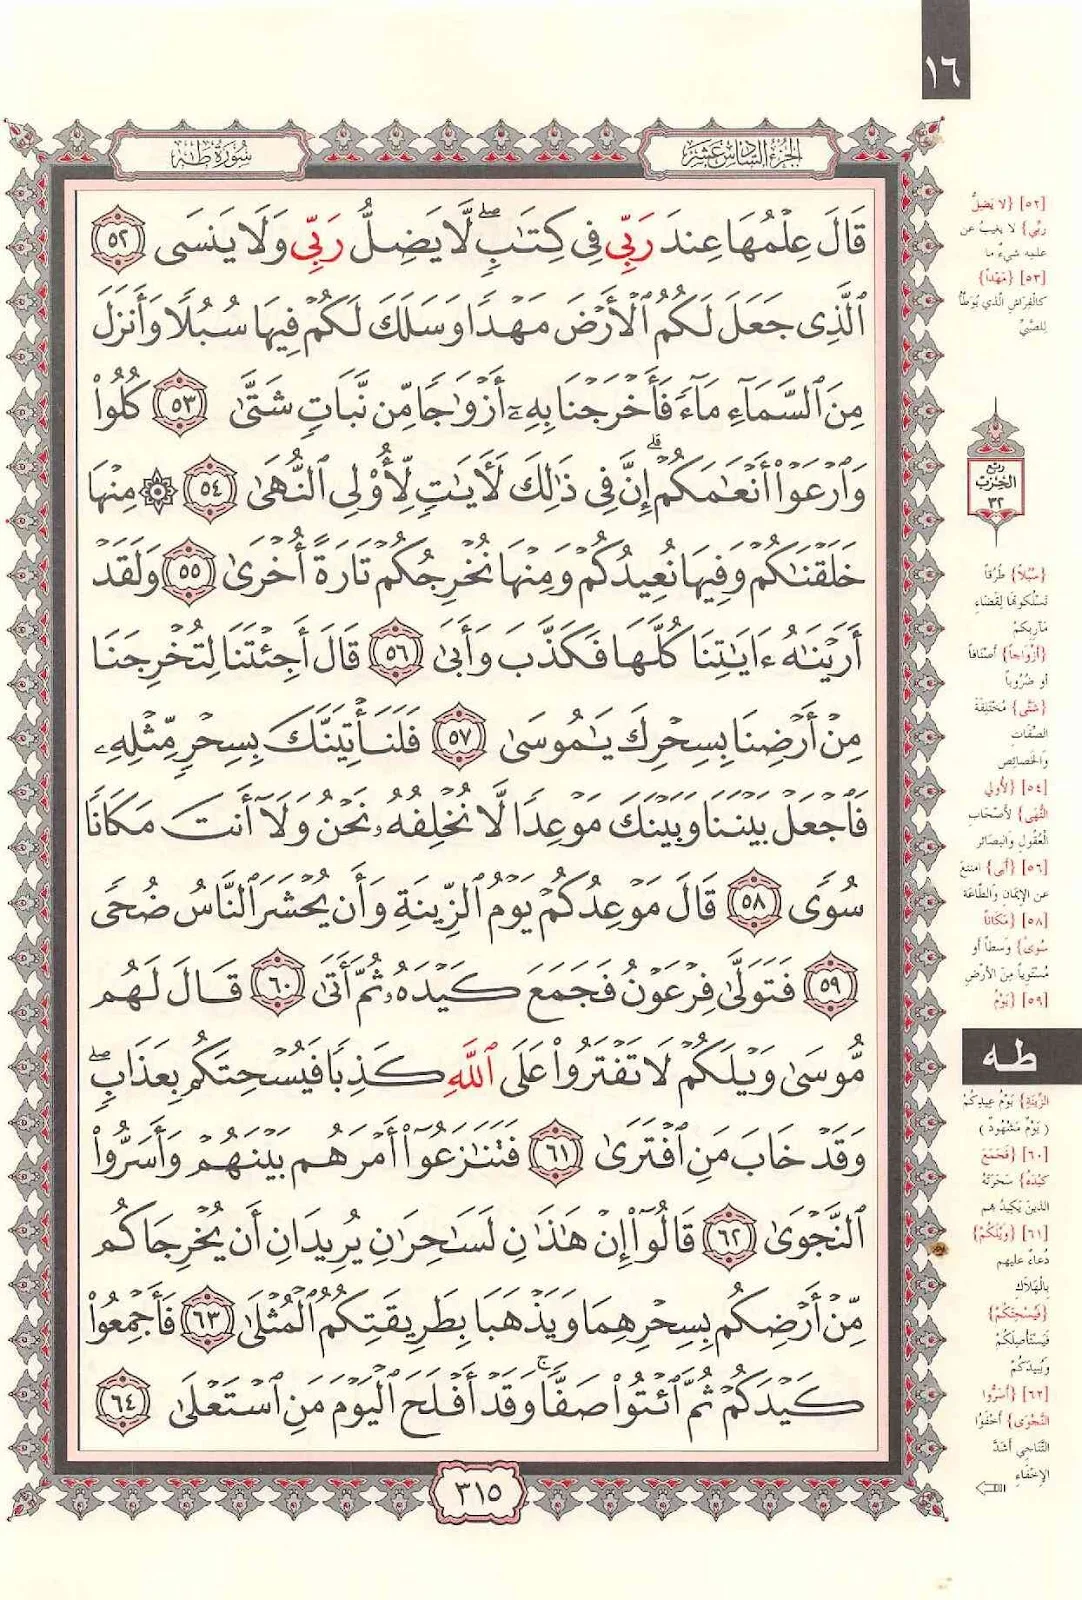 ١٦
الجزء السادس عشر
سورة طه
قَالَ عِلْمُهَا عِندَ رَبِّي فِي كِتَٰبٍۖ لَّا يَضِلُّ رَبِّي وَلَا يَنسَى ٥٢
ٱلَّذِي جَعَلَ لَكُمُ ٱلْأَرْضَ مَهْدًا وَسَلَكَ لَكُمْ فِيهَا سُبُلًا وَأَنزَلَ
مِنَ ٱلسَّمَآءِ مَآءً فَأَخْرَجْنَا بِهِۦٓ أَزْوَٰجًا مِّن نَّبَاتٍ شَتَّىٰ ٥٣ كُلُوا۟
وَٱرْعَوْا۟ أَنْعَٰمَكُمْۗ إِنَّ فِي ذَٰلِكَ لَأَيَٰتٍ لِّأُو۟لِي ٱلنُّهَىٰ ٥٤ ۞ مِنْهَا
خَلَقْنَٰكُمْ وَفِيهَا نُعِيدُكُمْ وَمِنْهَا نُخْرِجُكُمْ تَارَةً أُخْرَىٰ ٥٥ وَلَقَدْ
أَرَيْنَٰهُ ءَايَٰتِنَا كُلَّهَا فَكَذَّبَ وَأَبَىٰ ٥٦ قَالَ أَجِئْتَنَا لِتُخْرِجَنَا
مِنْ أَرْضِنَا بِسِحْرِكَ يَٰمُوسَىٰ ٥٧ فَلَنَأْتِيَنَّكَ بِسِحْرٍ مِّثْلِهِۦ
فَٱجْعَلْ بَيْنَنَا وَبَيْنَكَ مَوْعِدًا لَّا نُخْلِفُهُۥ نَحْنُ وَلَآ أَنتَ مَكَانًا
سُوًى ٥٨ قَالَ مَوْعِدُكُمْ يَوْمُ ٱلزِّينَةِ وَأَن يُحْشَرَ ٱلنَّاسُ ضُحًى
٥٩ فَتَوَلَّىٰ فِرْعَوْنُ فَجَمَعَ كَيْدَهُۥ ثُمَّ أَتَىٰ ٦٠ قَالَ لَهُم
مُّوسَىٰ وَيْلَكُمْ لَا تَفْتَرُوا۟ عَلَى ٱللَّهِ كَذِبًا فَيُسْحِتَكُم بِعَذَابٍۖ
وَقَدْ خَابَ مَنِ ٱفْتَرَىٰ ٦١ فَتَنَٰزَعُوٓا۟ أَمْرَهُم بَيْنَهُمْ وَأَسَرُّوا۟
ٱلنَّجْوَىٰ ٦٢ قَالُوٓا۟ إِنْ هَٰذَٰنِ لَسَٰحِرَٰنِ يُرِيدَانِ أَن يُخْرِجَاكُم
مِّنْ أَرْضِكُم بِسِحْرِهِمَا وَيَذْهَبَا بِطَرِيقَتِكُمُ ٱلْمُثْلَىٰ ٦٣ فَأَجْمِعُوا۟
كَيْدَكُمْ ثُمَّ ٱئْتُوا۟ صَفًّاۚ وَقَدْ أَفْلَحَ ٱلْيَوْمَ مَنِ ٱسْتَعْلَىٰ ٦٤
٣١٥
[٥٢] {لا يَضِلُّ
ربِّي} لا يغيبُ عن
علمِه شيءٌ ما
[٥٣] {مَهْداً}
كالفِراشِ الّذي يُوَطَّأُ
للصَّبِيِّ
ربع
الحزب
٣٢
{سُبُلاً} طُرُقاً
تَسْلُكونَها لِقَضاءِ
مَآرِبِكمْ
{أَزْوَاجاً} أَصْنَافاً
أو ضُرُوباً
{شَتَّى} مُخْتَلِفَةَ
الصِّفَاتِ
وَالخَصائِصِ
[٥٤] {لأُولي
النُّهَى} لأَصْحابِ
العُقُولِ والبَصائرِ
[٥٦] {أَبَى} امتنعَ
عنِ الإيمَانِ والطَّاعَةِ
[٥٨] {مَكَاناً
سُوًى} وَسطاً أو
مُسْتَوِياً مِنَ الأَرْضِ
[٥٩] {يَوْمُ
طه
الزِّينَةِ} يَوْمُ عِيدِكُمْ
(يَوْمٌ مَشْهُودٌ)
[٦٠] {فَجَمَعَ
كَيْدَهُ} سَحَرَتَهُ
الذينَ يَكِيدُ بهِم
[٦١] {وَيْلَكُمْ}
دُعاءٌ عليهِم
بِالْهَلاكِ
{فَيُسْحِتَكُمْ}
فَيَسْتَأْصِلَكُمْ
ويُبيدَكُمْ
[٦٢] {أَسَرُّوا
النَّجْوَى} أَخْفَوْا
التَّنَاجِي أَشَدَّ
الإِخْفَاءِ